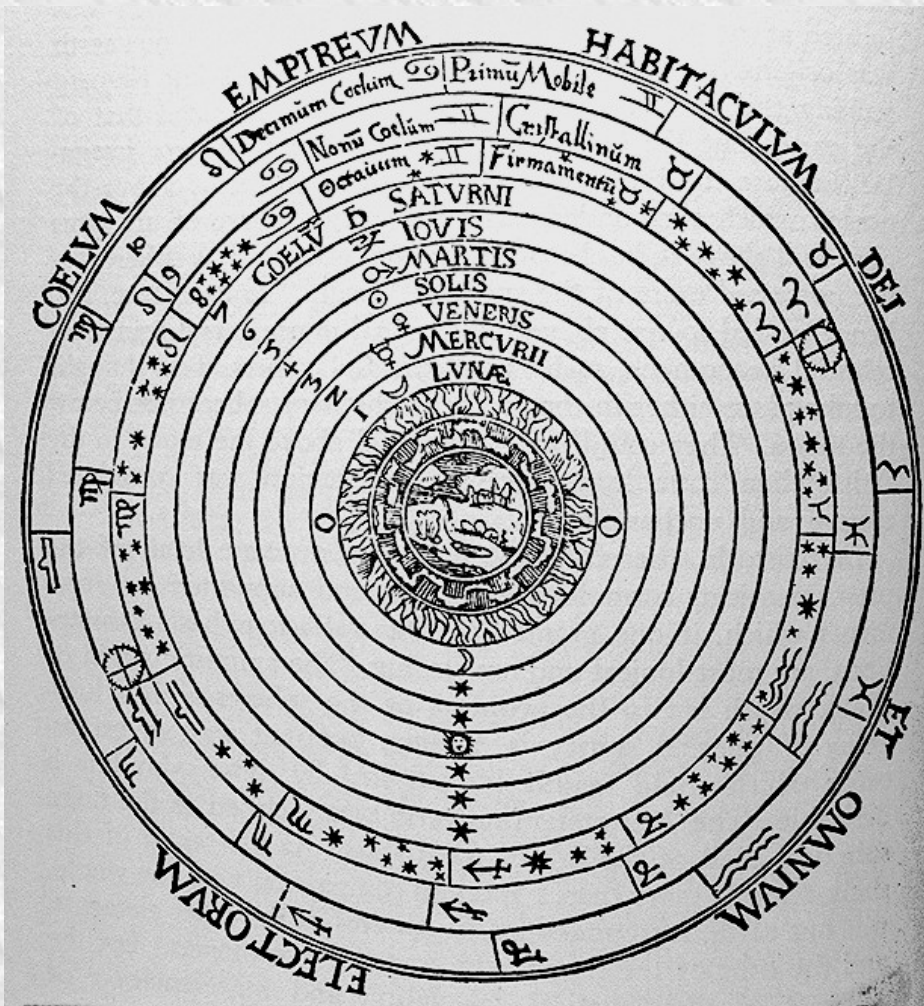 COELVM EMPIREVM HABITACVLVM DEI ET OMNIVM ELECTORVM
10 Decimūm Coelum ♋ Primū Mobile ♊
9 Nonū Coelūm ♊ Cristallinūm ♉
8 Octauum ♊ Firmamentū ♉
7 COELV̄ ♄ SATVRNI
6 ♃ IOVIS
5 ♂ MARTIS
4 ☉ SOLIS
3 ♀ VENERIS
2 ☿ MERCVRII
1 ☽ LVNÆ